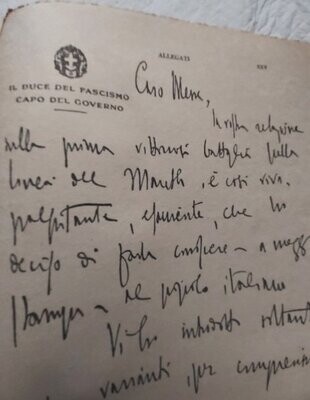 ALLEGATI
IL DUCE DEL FASCISMO
CAPO DEL GOVERNO
Caro Messe,
la vostra relazione
sulla prima vittoriosa battaglia sulla
linea del Mareth, è così viva,
palpitante, esauriente, che ho
deciso di farla conoscere - a mezzo
stampa - al popolo italiano
Vi ho introdotto soltant
varianti, per comprensi